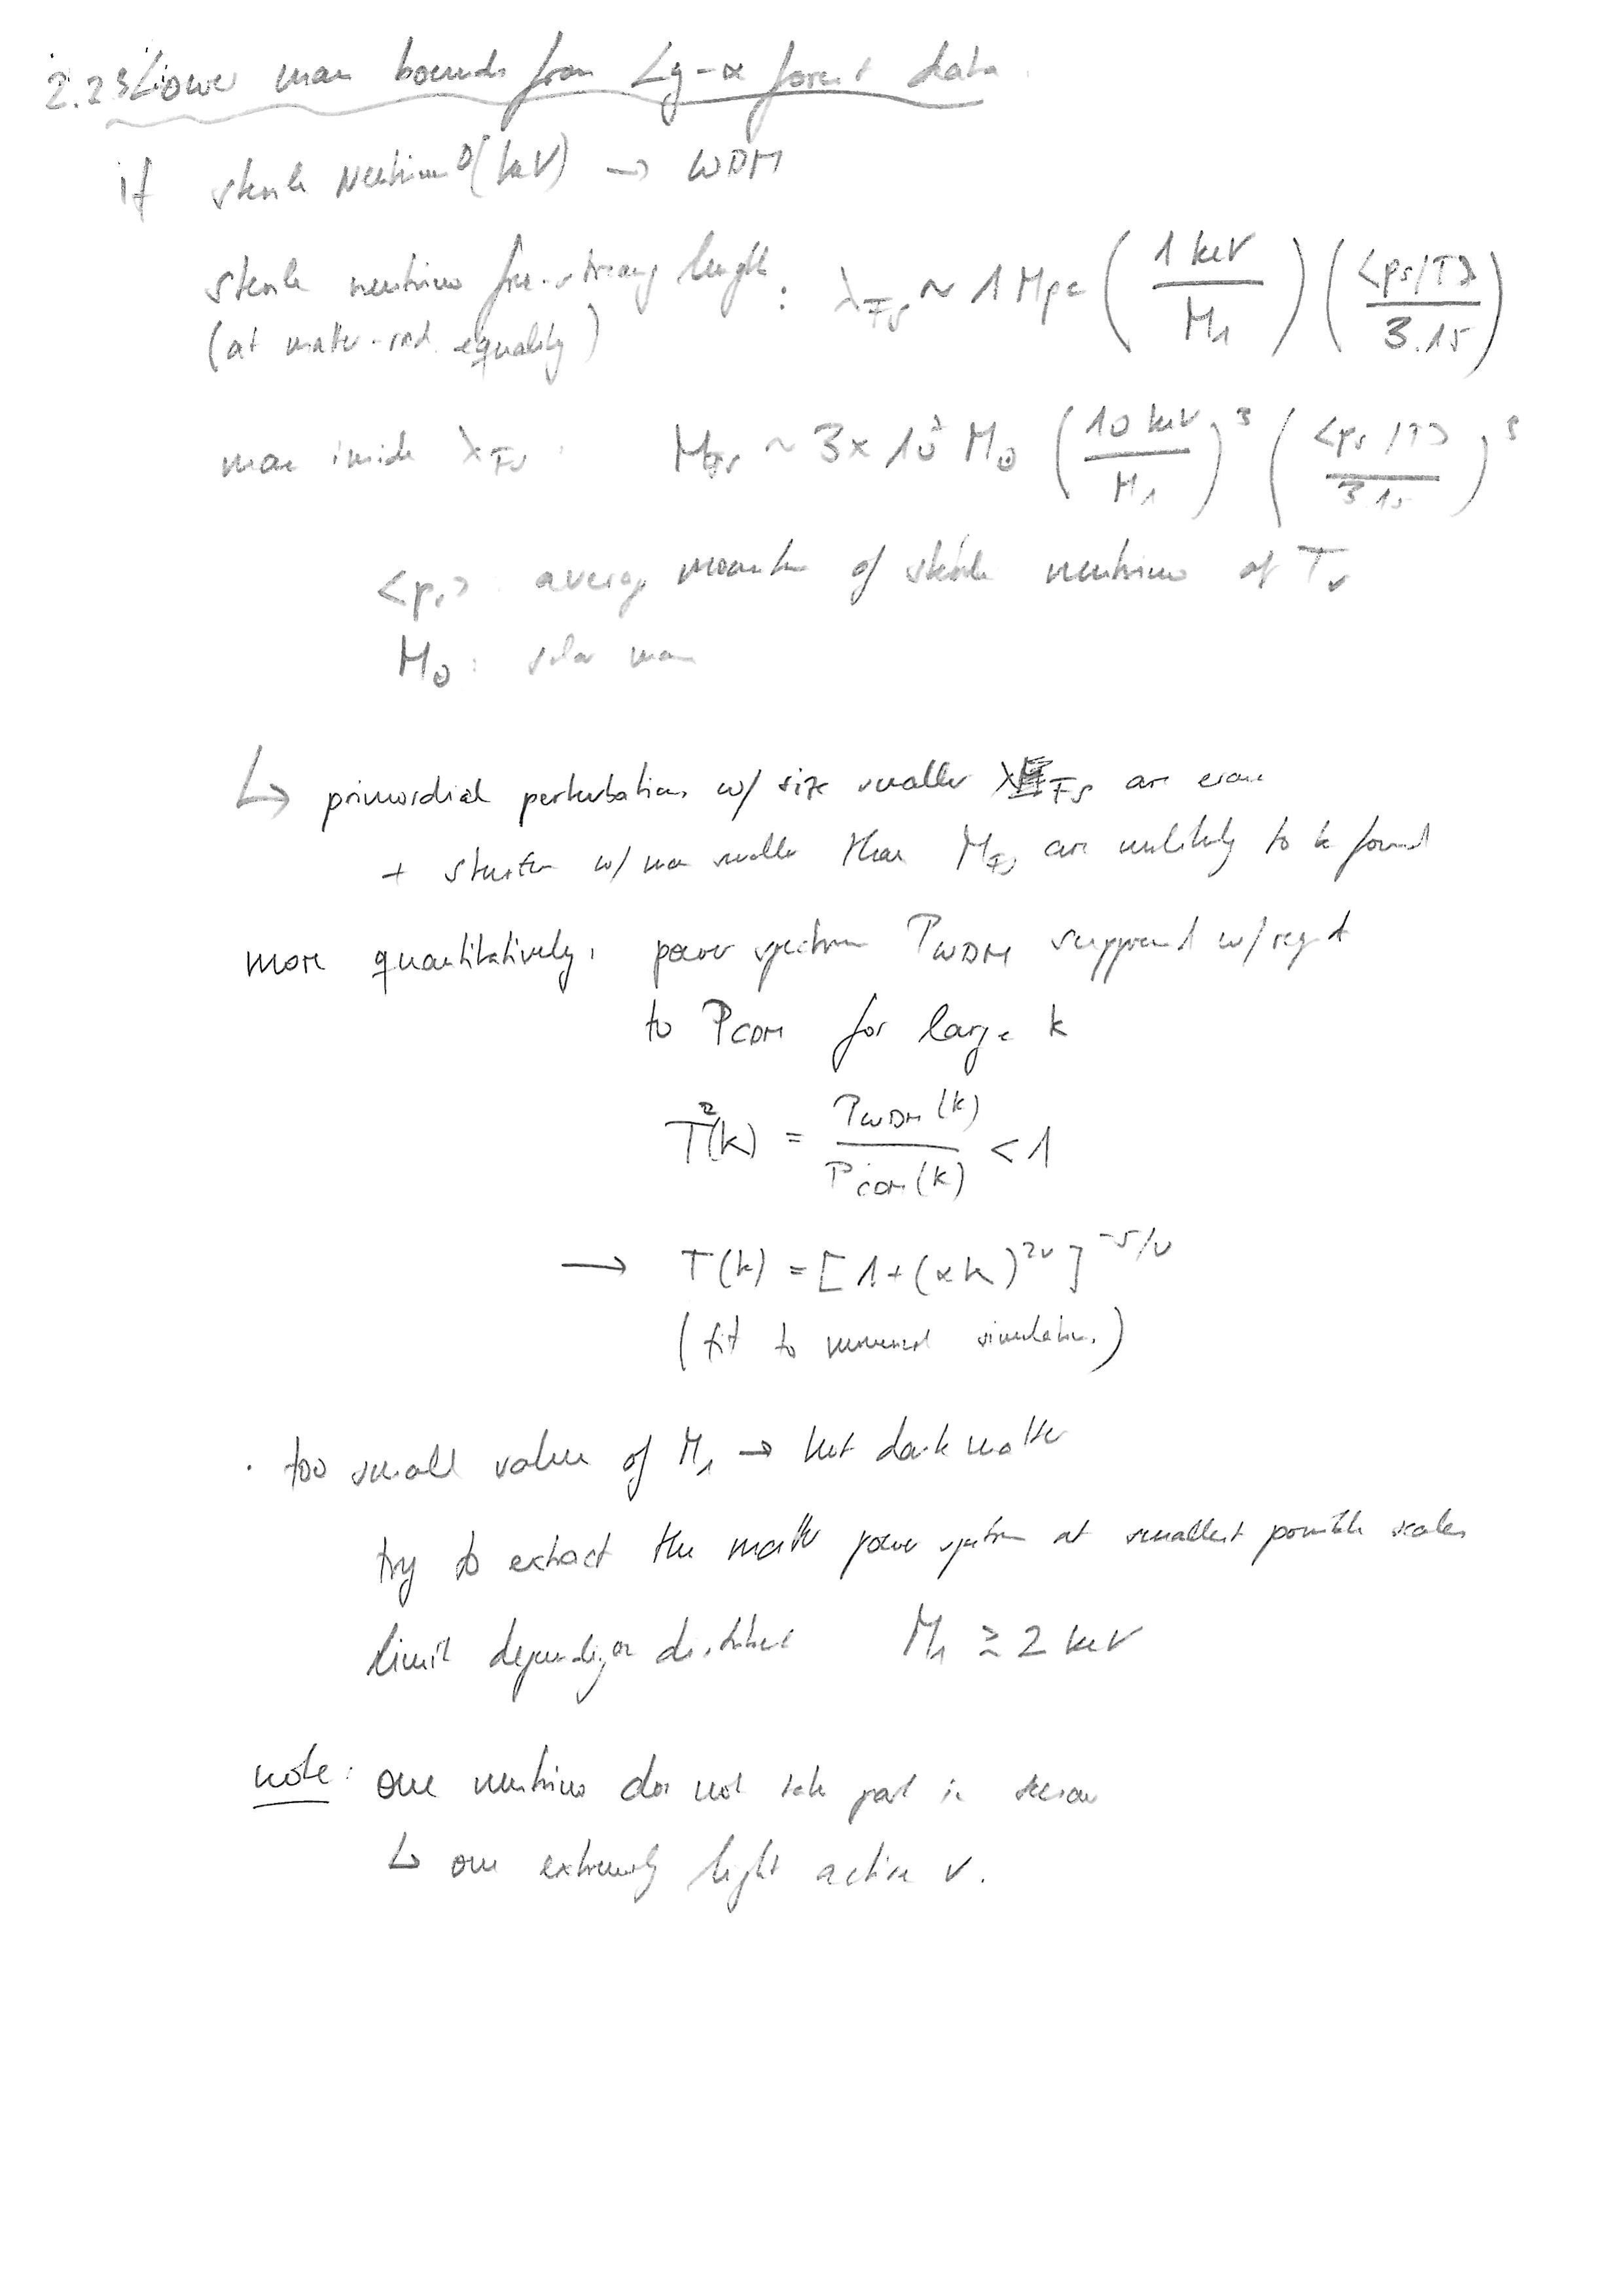 2.2.3 Lower mass bounds from Ly-α forest data
if sterile Neutrino O(keV) → WDM
sterile neutrino free-streaming length : λ_FS ~ 1 Mpc (1 keV / M_1) (<p_s/T> / 3.15)
(at matter-rad. equality)
mass inside λ_FS : M_FS ~ 3 x 10 M_⊙ (10 keV / M_1)^3 (<p_s/T> / 3.15)^3
<p_s> : average momentum of sterile neutrino at T_ν
M_⊙ : solar mass
↳ primordial perturbations w/ size smaller λ_FS are erased
+ structure w/ mass smaller than M_FS are unlikely to be found
more quantitatively, power spectrum P_WDM suppressed w/ respect
to P_CDM for large k
T^2(k) = P_WDM(k) / P_CDM(k) < 1
→ T(k) = [1+(αk)^{2ν}]^{-5/ν}
(fit to numerical simulations)
· too small value of M_1 → hot dark matter
try to extract the matter power spectrum at smallest possible scales
limit depending on M_1 ≳ 2 keV
note: one neutrino does not take part in seesaw
↳ one extremely light active ν.